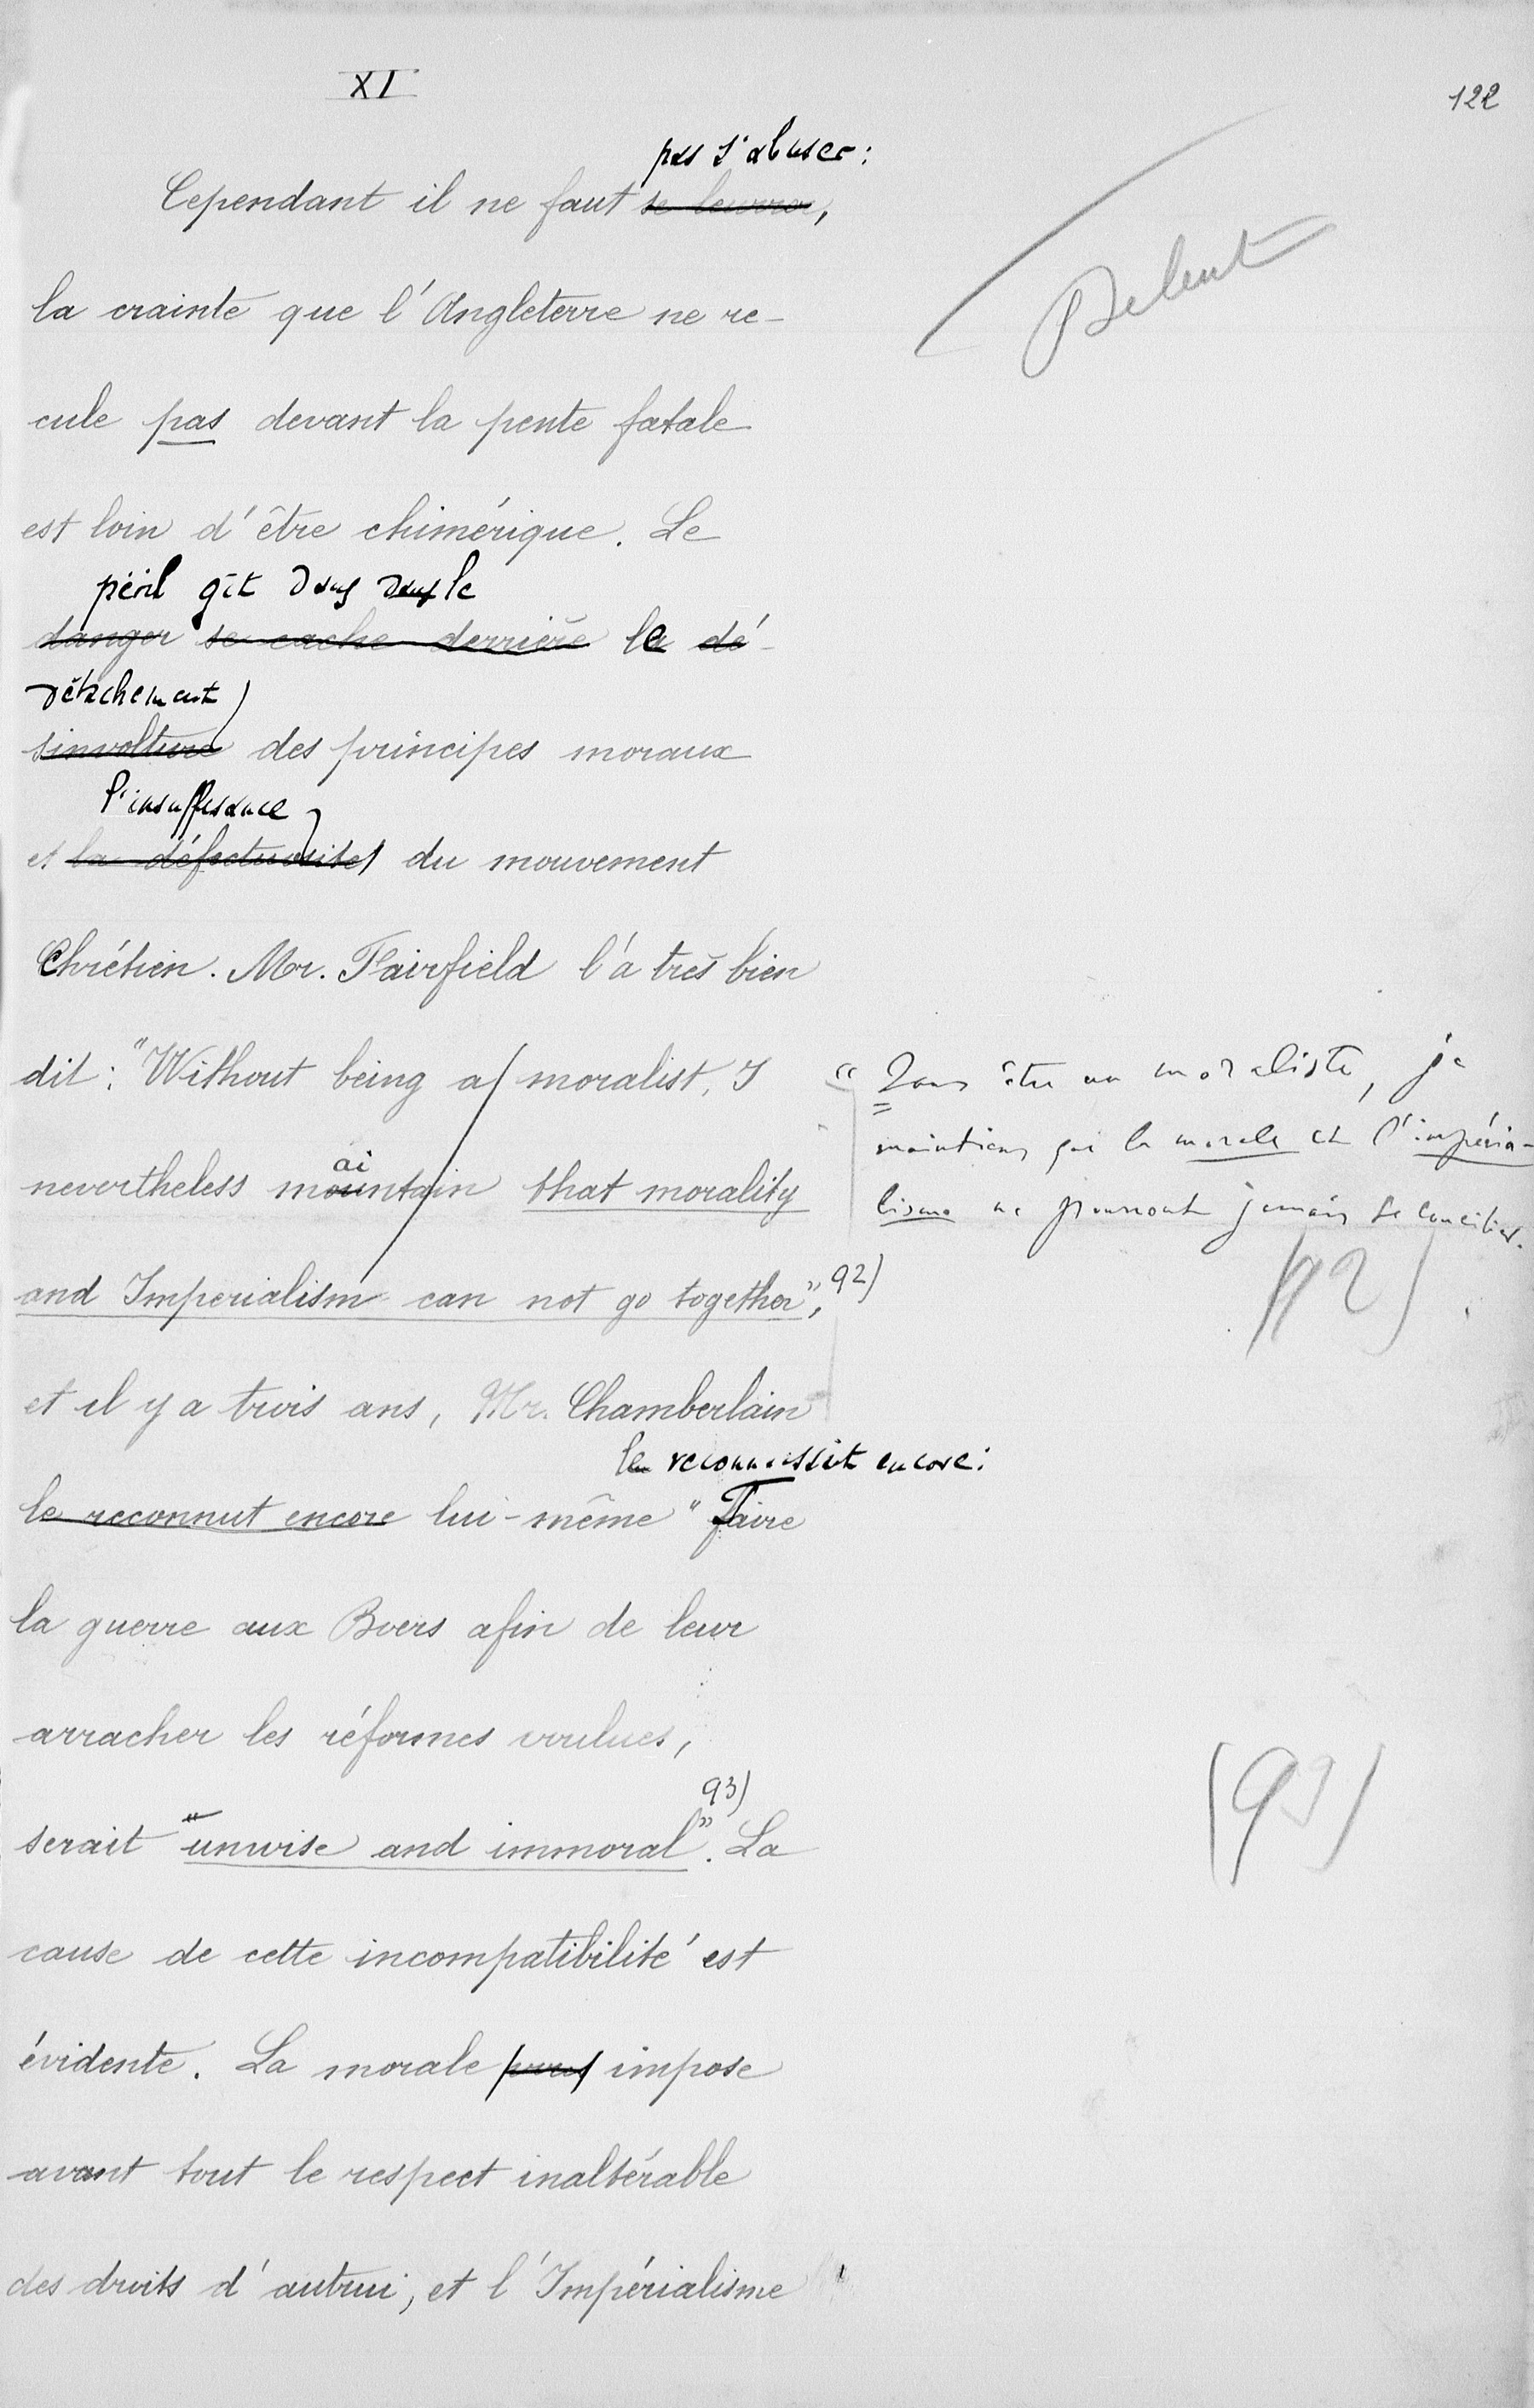 XI
122
pas s'abuser:
Cependant il ne faut se leurrer,
Debent
la crainte que l'Angleterre ne re-
cule pas devant la pente fatale
est loin d'être chimérique. Le
péril gît dans le
danger se cache derrière le dé-
détachement
sinvolture des principes moraux
l'insuffisance
et la défectuosité du mouvement
Chrétien. Mr. Fairfield l'a très bien
dit: "Without being a moralist, I
"Sans être un moraliste, je
maintiens que la morale et l'impéria-
ai
nevertheless mountain that morality
lisme ne pourront jamais se concilier.
and Imperialism can not go together", 92)
92)
et il y a trois ans, Mr. Chamberlain
le reconnaissait encore:
le reconnut encore lui-même "Faire
la guerre aux Boers afin de leur
arracher les réformes voulues,
93)
serait "unwise and immoral". La
(93)
cause de cette incompatibilité est
évidente. La morale impose
avant tout le respect inaltérable
des droits d'autrui, et l'Impérialisme